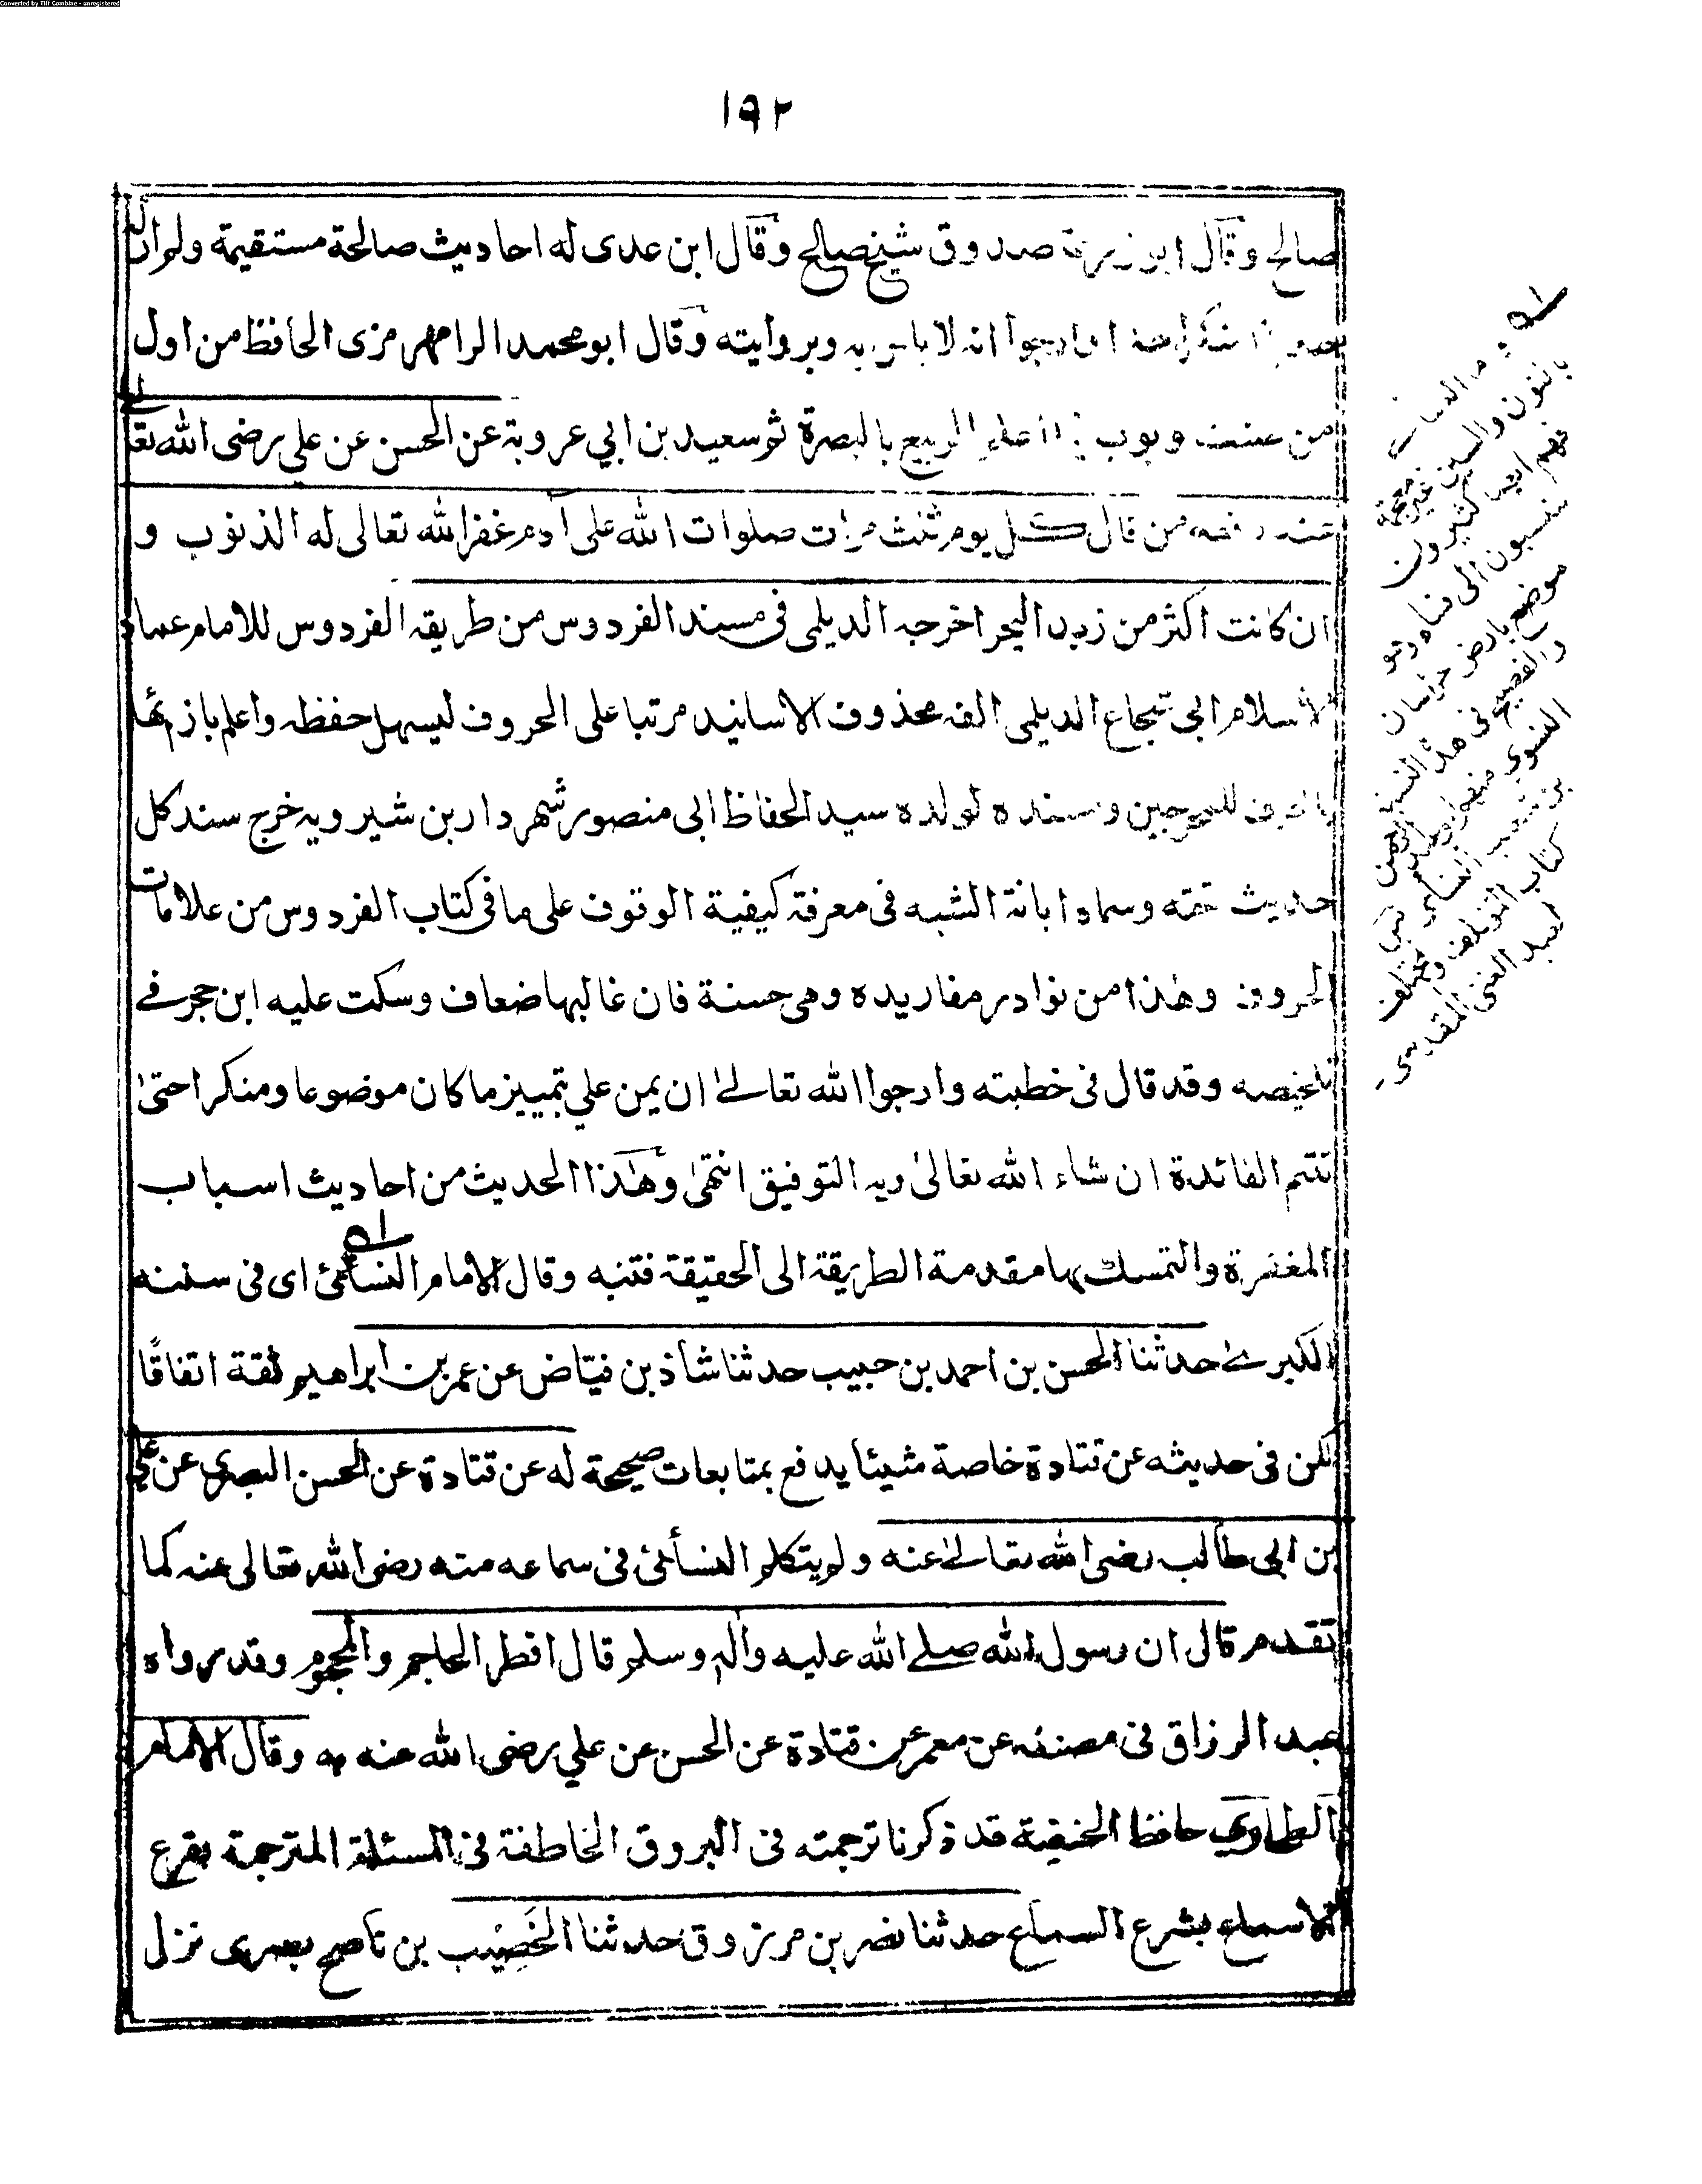 Converted by Tiff Combine - unregistered
١٩٢
صالح وقال ابو زرعة صدوق شيخ صالح وقال ابن عدى له احاديث صالحة مستقيمة ولم ار له
ارجوا انه لا باس به وبروايته وقال ابو محمد الرامهرمزى الحافظ من اول
من صنف وبوب الربيع بالبصرة ثم سعيد بن ابي عروبة عن الحسن عن علي رضى الله تعالى
عنه رفعه من قال كل يوم ثلث مرات صلوات الله على آدم غفر الله تعالى له الذنوب و
ان كانت اكثر من زبد البحر اخرجه الديلمى فى مسند الفردوس من طريقه الفردوس للامام عماد
الاسلام ابى شجاع الديلمى الفه محذوف الاسانيد مرتبا على الحروف ليسهل حفظه واعلم بازائها
بالحروف للمخرجين ومسنده لولده سيد الحفاظ ابى منصور شهردار بن شيرويه خرج سند كل
حديث تحته وسماه ابانة الشبه فى معرفة كيفية الوقوف على ما فى كتاب الفردوس من علامات
الحروف وهذا من نوادر مفاريده وهى حسنة فان غالبها ضعاف وسكت عليه ابن حجر فى
تلخيصه وقد قال فى خطبته وارجوا الله تعالى ان يمن علي بتمييز ما كان موضوعا ومنكرا حتى
تتم الفائدة ان شاء الله تعالى وبه التوفيق انتهى وهذا الحديث من احاديث اسباب
المغفرة والتمسك بها مقدمة الطريقة الى الحقيقة فتنبه وقال الامام النسائى اى فى سننه
الكبرى حدثنا الحسن بن احمد بن حبيب حدثنا شاذ بن فيّاض عن عمر بن ابراهيم ثقة اتفاقًا
لكن فى حديثه عن قتادة خاصة شيئا يدفع بمتابعات صحيحة له عن قتادة عن الحسن البصرى عن علي
بن ابى طالب رضى الله تعالى عنه ولم يتكلم النسائى فى سماعه منه رضى الله تعالى عنه كما
تقدم قال ان رسول الله صلى الله عليه وآله وسلم قال افطر الحاجم والمحجوم وقد رواه
عبد الرزاق فى مصنفه عن معمر عن قتادة عن الحسن عن علي رضى الله عنه به وقال الامام
الطحاوى حافظ الحنفية قد ذكرنا ترجمته فى البروق الخاطفة فى المسئلة المترجمة بقرع
الاسماع بشرع السماع حدثنا نصر بن مرزوق حدثنا الخَصِيب بن ناصح بصرى نزل
بالنون والسين غير معجمة
فهم ايضا كثيرون
ينسبون الى نساء وهو
موضع بارض خراسان
والفصيح فى هذه النسبة
النسوى منهم ابو عبد الرحمن
بن شعيب النسائى
كتاب المؤتلف والمختلف
لعبد الغنى المقدسى